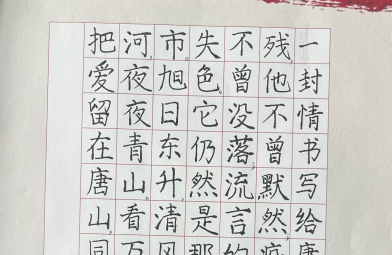 一封情书写给唐
残,他不曾默然,
不曾没落,流言的
失色。它仍然是那
市。旭日东升,清风
河,夜夜青山。看万
把爱留在唐山,同